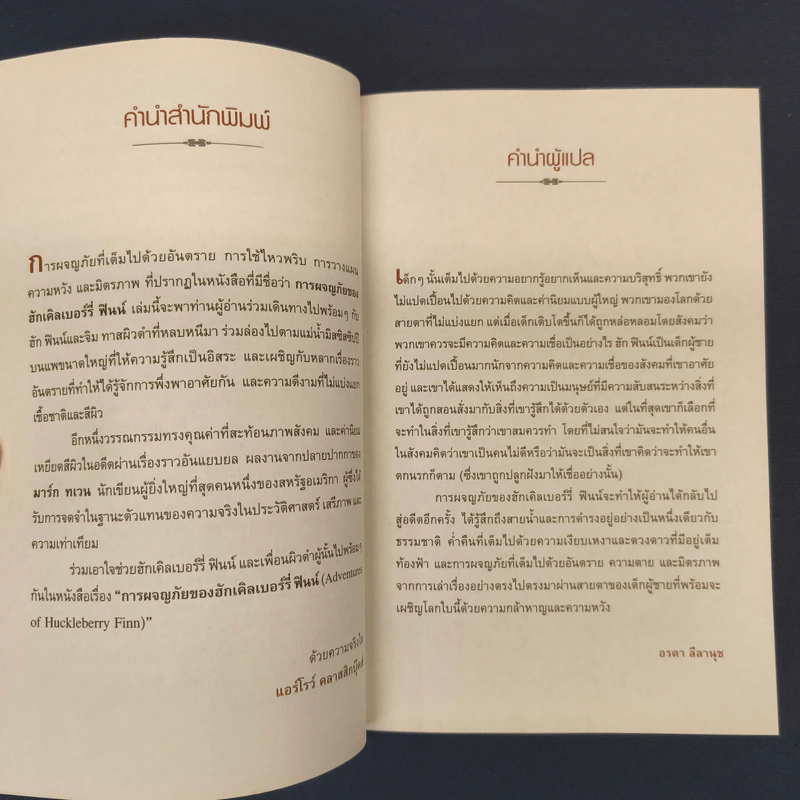 คำนำสำนักพิมพ์
การผจญภัยที่เต็มไปด้วยอันตราย การใช้ไหวพริบ การวางแผน
ความหวัง และมิตรภาพ ที่ปรากฏในหนังสือที่มีชื่อว่า การผจญภัยของ
ฮักเคิลเบอร์รี่ ฟินน์ เล่มนี้จะพาท่านผู้อ่านร่วมเดินทางไปพร้อมๆ กับ
ฮัก ฟินน์และจิม ทาสผิวดำที่หลบหนีมา ร่วมล่องไปตามแม่น้ำมิสซิสซิปปี
บนแพขนาดใหญ่ที่ให้ความรู้สึกเป็นอิสระ และเผชิญกับหลากเรื่องราว
อันตรายที่ทำให้ได้รู้จักการพึ่งพาอาศัยกัน และความดีงามที่ไม่แบ่งแยก
เชื้อชาติและสีผิว
อีกหนึ่งวรรณกรรมทรงคุณค่าที่สะท้อนภาพสังคม และค่านิยม
เหยียดสีผิวในอดีตผ่านเรื่องราวอันแยบยล ผลงานจากปลายปากกาของ
มาร์ก ทเวน นักเขียนผู้ยิ่งใหญ่ที่สุดคนหนึ่งของสหรัฐอเมริกา ผู้ซึ่งได้
รับการจดจำในฐานะตัวแทนของความจริงในประวัติศาสตร์ เสรีภาพ และ
ความเท่าเทียม
ร่วมเอาใจช่วยฮักเคิลเบอร์รี่ ฟินน์ และเพื่อนผิวดำผู้นั้นไปพร้อมๆ
กันในหนังสือเรื่อง “การผจญภัยของฮักเคิลเบอร์รี่ ฟินน์ (Adventures
of Huckleberry Finn)”
ด้วยความจริงใจ
แอร์โรว์ คลาสสิกบุ๊คส์
คำนำผู้แปล
เด็กๆ นั้นเต็มไปด้วยความอยากรู้อยากเห็นและความบริสุทธิ์ พวกเขายัง
ไม่แปดเปื้อนไปด้วยความคิดและค่านิยมแบบผู้ใหญ่ พวกเขามองโลกด้วย
สายตาที่ไม่แบ่งแยก แต่เมื่อเด็กเติบโตขึ้นก็ได้ถูกหล่อหลอมโดยสังคมว่า
พวกเขาควรจะมีความคิดและความเชื่อเป็นอย่างไร ฮัก ฟินน์เป็นเด็กผู้ชาย
ที่ยังไม่แปดเปื้อนมากนักจากความคิดและความเชื่อของสังคมที่เขาอาศัย
อยู่ และเขาได้แสดงให้เห็นถึงความเป็นมนุษย์ที่มีความสับสนระหว่างสิ่งที่
เขาได้ถูกสอนสั่งมากับสิ่งที่เขารู้สึกได้ด้วยตัวเอง แต่ในที่สุดเขาก็เลือกที่
จะทำในสิ่งที่เขารู้สึกว่าเขาสมควรทำ โดยที่ไม่สนใจว่ามันจะทำให้คนอื่น
ในสังคมคิดว่าเขาเป็นคนไม่ดีหรือว่ามันจะเป็นสิ่งที่เขาคิดว่าจะทำให้เขา
ตกนรกก็ตาม (ซึ่งเขาถูกปลูกฝังมาให้เชื่ออย่างนั้น)
การผจญภัยของฮักเคิลเบอร์รี่ ฟินน์จะทำให้ผู้อ่านได้กลับไป
สู่อดีตอีกครั้ง ได้รู้สึกถึงสายน้ำและการดำรงอยู่อย่างเป็นหนึ่งเดียวกับ
ธรรมชาติ ค่ำคืนที่เต็มไปด้วยความเงียบเหงาและดวงดาวที่มีอยู่เต็ม
ท้องฟ้า และการผจญภัยที่เต็มไปด้วยอันตราย ความตาย และมิตรภาพ
จากการเล่าเรื่องอย่างตรงไปตรงมาผ่านสายตาของเด็กผู้ชายที่พร้อมจะ
เผชิญโลกใบนี้ด้วยความกล้าหาญและความหวัง
อรดา ลีลานุช